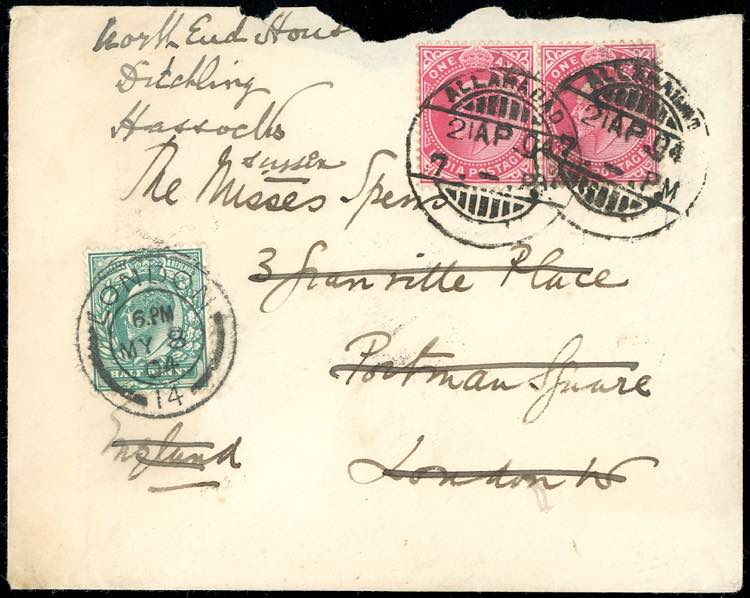 North End Hous
Ditchling
Hassocks
Sussex
The Misses Spens
3 Granville Place
Portman Square
London W
England
ONE AN
INDIA POSTAGE
ALLAHABAD
21 AP 04
7 - PM
ONE
POSTAGE
ALLAHABAD
21 AP 04
7 - PM
HALF PENNY
LONDON
6.PM
MY 8
04
14